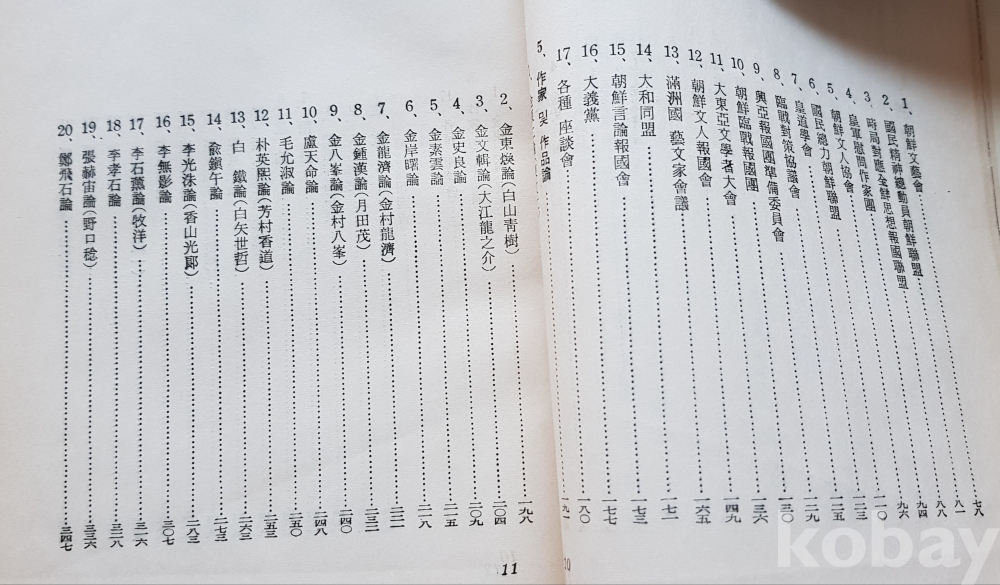 1、朝鮮文藝會……七八
2、國民精神總動員朝鮮聯盟……八一
3、時局對應全鮮思想報國聯盟……八八
4、皇軍慰問作家團……九六
5、朝鮮文人協會……一〇
6、國民總力朝鮮聯盟……一二三
7、皇道學會……
8、臨戰對策協議會……一二九
9、興亞報國團準備委員會……一三〇
10、朝鮮臨戰報國團……一三六
11、大東亞文學者大會……一四九
12、朝鮮文人報國會……一六五
13、滿洲國 藝文家會議……一七一
14、大和同盟……一七三
15、朝鮮言論報國會……一七七
16、大義黨……一八〇
17、各種 座談會……一九一
5、作家 및 作品論
10
2、金東煥論(白山靑樹)……一九八
3、金文輯論(大江龍之介)……二〇四
4、金史良論……二〇九
5、金素雲論……二一五
6、金岸曙論……二一八
7、金龍濟論(金村龍濟)……二二一
8、金鍾漢論(月田茂)……二三二
9、金八峯論(金村八峯)……二四〇
10、盧天命論……二四八
11、毛允淑論……二五〇
12、朴英熙論(芳村香道)……二五三
13、白 鐵論(白矢世哲)……二六三
14、兪鎭午論……二七三
15、李光洙論(香山光郞)……二八三
16、李無影論……三〇七
17、李石薰論(牧洋)……三一六
18、李孝石論……三二八
19、張赫宙論(野口稔)……三三六
20、鄭飛石論……三四七
11
kobay